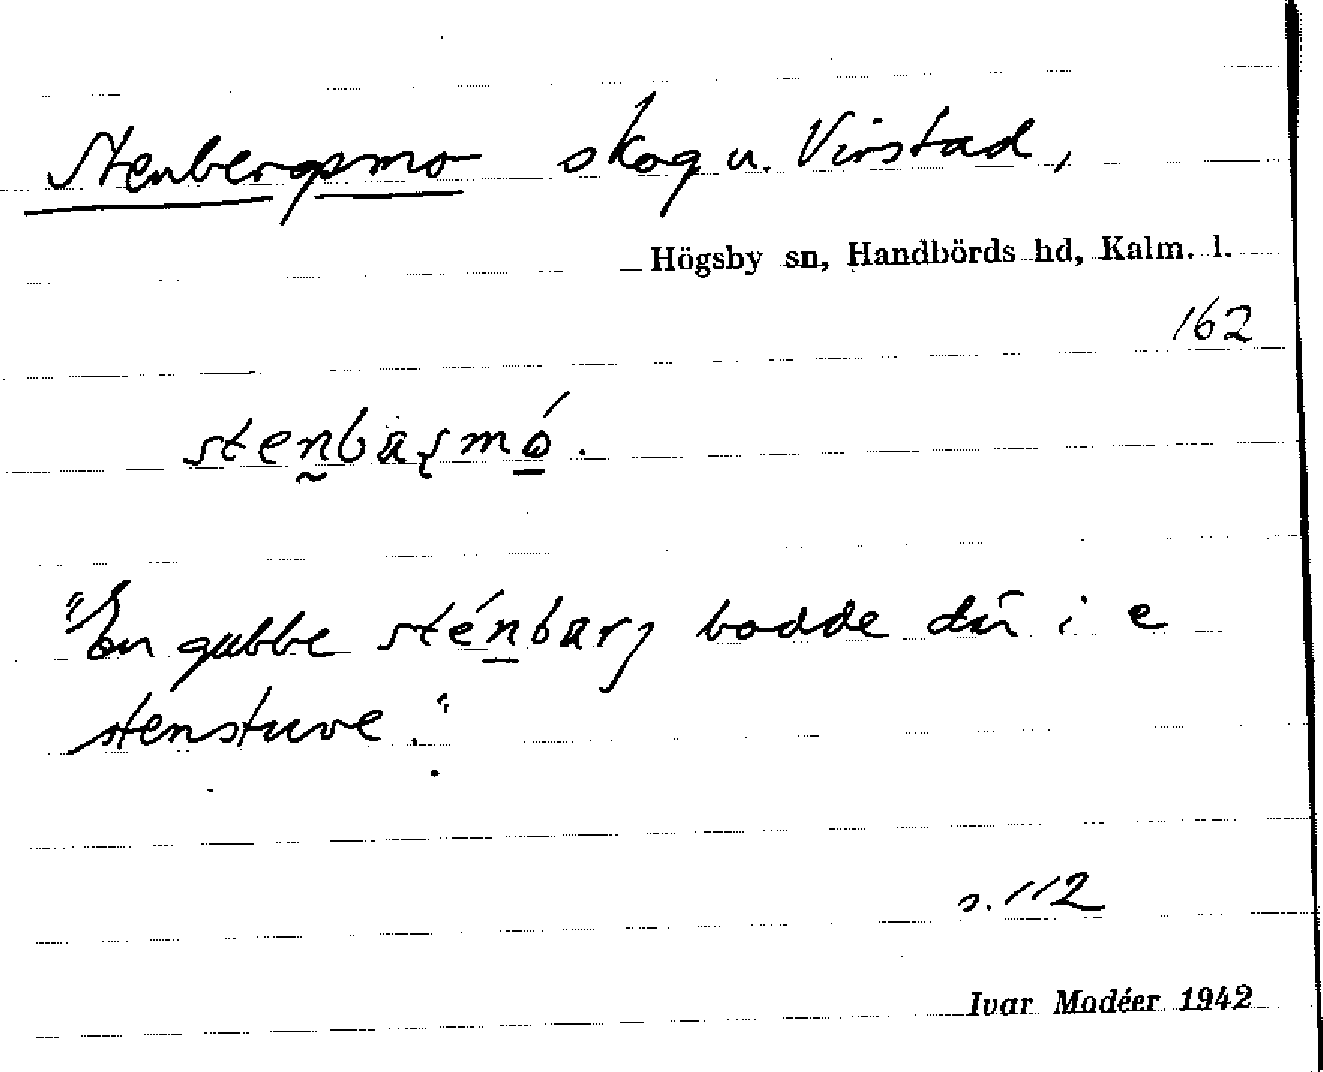 Stenbergsmo skog u. Virstad,
Högsby sn, Handbörds hd, Kalm. l.
162
stenbaʂmó.
"En gubbe sténbarj bodde där i e
stenstuve."
s. 112
Ivar Modéer 1942